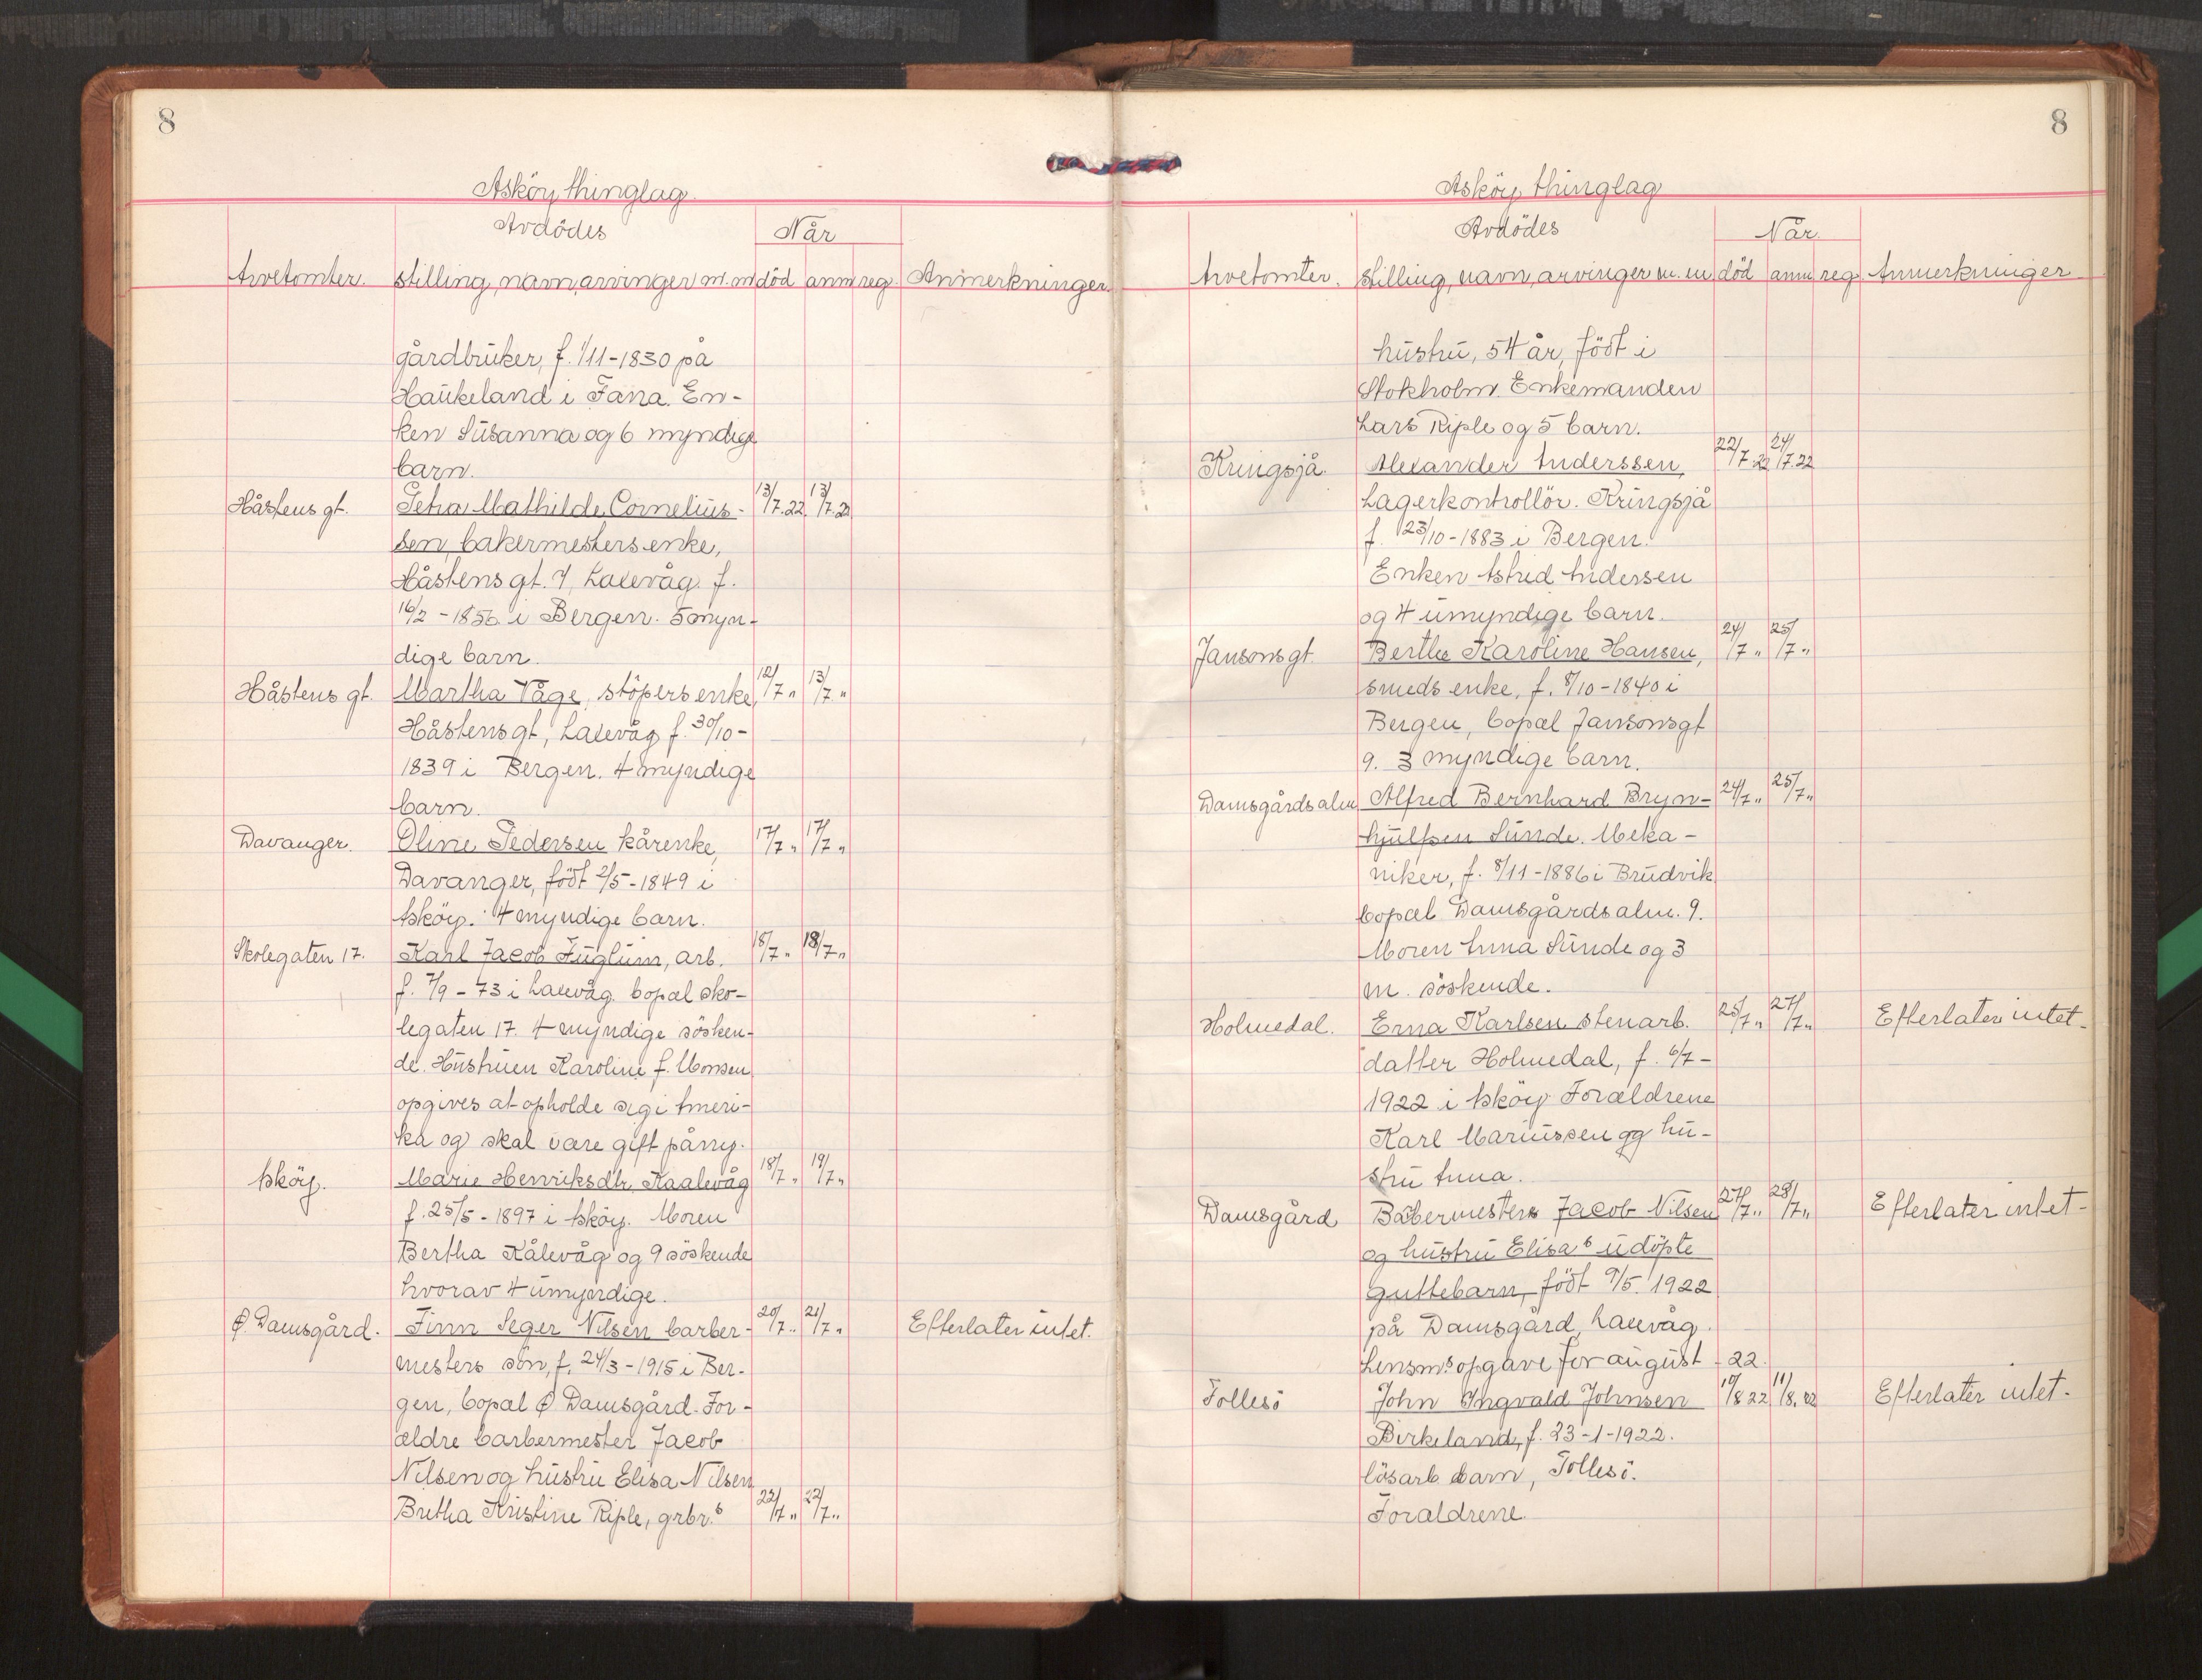 8
Asköy thinglag.
Avdödes
Når
Arvetomter. stilling, navn, arvinger m.m. död anm reg. Anmerkninger.
gårdbruker, f. 1/11-1830 på
Haukeland i Fana. En-
ken Susanna og 6 myndige
barn.
Håstens gt. Petra Mathilde Cornelius- 13/7.22 13/7.22
sen, bakermesters enke,
Håstens gt. 7, Laxevåg. f.
16/2-1850 i Bergen. 5 myn-
dige barn.
Håstens gt. Martha Våge, stöpers enke, 12/7 " 13/7 "
Håstens gt, Laxevåg f. 30/10-
1839 i Bergen. 4 myndige
barn.
Davanger. Oline Pedersen kårenke, 17/7 " 17/7 "
Davanger, född 2/5-1849 i
Asköy. 4 myndige barn.
Skolegaten 17. Karl Jacob Fuglum, arb. 18/7 " 18/7 "
f. 7/9-73 i Laxevåg. bopæl sko-
legaten 17. 4 myndige sösken-
de. Hustruen Karoline f. Monsen
opgives at opholde sig i Ameri-
ka og skal være gift påny.
Asköy. Marie Henriksdtr. Kaalevåg 18/7 " 19/7 "
f. 25/5-1897 i Asköy. Moren
Bertha Kålevåg og 9 söskende
hvorav 4 umyndige.
Ø. Damsgård. Finn Seger Nilsen barber- 20/7 " 21/7 " Efterlater intet.
mesters sön, f. 24/3-1915 i Ber-
gen, bopæl Ø Damsgård. For-
ældre barbermester Jacob
Nilsen og hustru Elisa Nilsen
Bretha Kristine Riple, grbr.s 22/7 " 22/7 "
8
Asköy thinglag
Avdödes
Når
Arvetomter. stilling, navn, arvinger m.m död anm reg. Anmerkninger
hustru, 54 år, födt i
Stokholm. Enkemanden
Lars Riple og 5 barn.
Kringsjå. Alexander Anderssen, 22/7.22 24/7.22
Lagerkontrollör. Kringsjå
f. 23/10-1883 i Bergen.
Enken Astrid Andersen
og 4 umyndige barn.
Jansons gt. Berthe Karoline Hansen, 24/7 " 25/7 "
smeds enke, f. 8/10-1840 i
Bergen, bopæl Jansonsgt
9. 3 myndige barn.
Damsgårdsalm Alfred Bernhard Bryn- 24/7 " 25/7 "
hjulfsen Sunde. Meka-
niker, f. 8/11-1886 i Brudvik
bopæl Damsgårdsalm. 9.
Moren Anna Sunde og 3
m. söskende.
Holmedal. Erna Karlsen stenarb. 25/7 " 27/7 " Efterlater intet.
datter Holmedal, f. 6/7-
1922 i Asköy. Forældrene
Karl Mariussen og hu-
stru Anna.
Damsgård Babermesters Jacob Nilsen 27/7 " 28/7 " Efterlater intet.
og hustru Elisas udöpte
guttebarn, födt 9/5 1922
på Damsgård, Laxevåg.
Lensm.s opgave for august - 22.
Follesö John Ingvald Johnsen 10/8 22 11/8. 22 Efterlater intet.
Birkeland, f. 23-1-1922.
lösarb barn, Follesö.
Foraldrene.